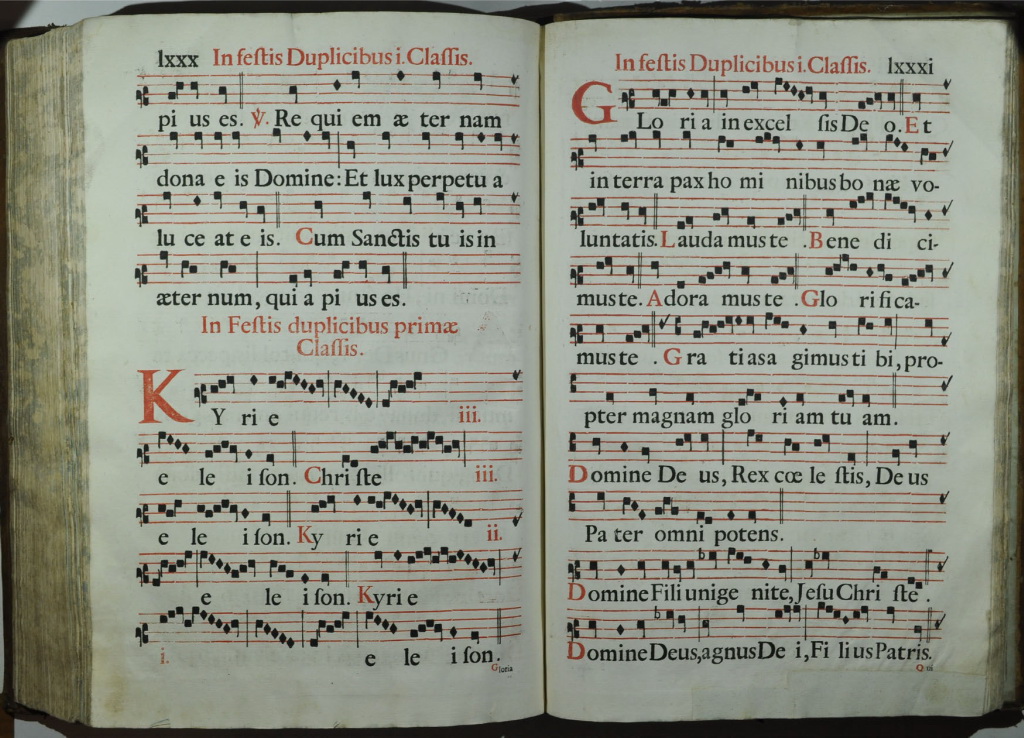 lxxx In feſtis Duplicibus i. Claſſis.
pi us es. ℣. Re qui em æ ter nam
dona e is Domine: Et lux perpetu a
lu ce at e is. Cum Sanctis tu is in
æter num, qui a pi us es.
In Feſtis duplicibus primæ
Claſſis.
KY ri e iii.
e le i ſon. Chri ſte iii.
e le i ſon. Ky ri e ii.
e le i ſon. Kyri e
i. e le i ſon.
Gloria
In feſtis Duplicibus i. Claſſis. lxxxi
GLo ri a in excel ſis De o. Et
in terra pax ho mi nibus bo næ vo-
luntatis. Lauda mus te . Bene di ci-
mus te. Adora mus te . Glo ri fi ca-
mus te . Gra ti as a gimus ti bi, pro-
pter magnam glo ri am tu am.
Domine De us, Rex cœ le ſtis, De us
Pa ter omni potens.
b b
Domine Fili unige nite, Jeſu Chri ſte .
b
Domine Deus, agnus De i, Fi li us Patris.
Qui